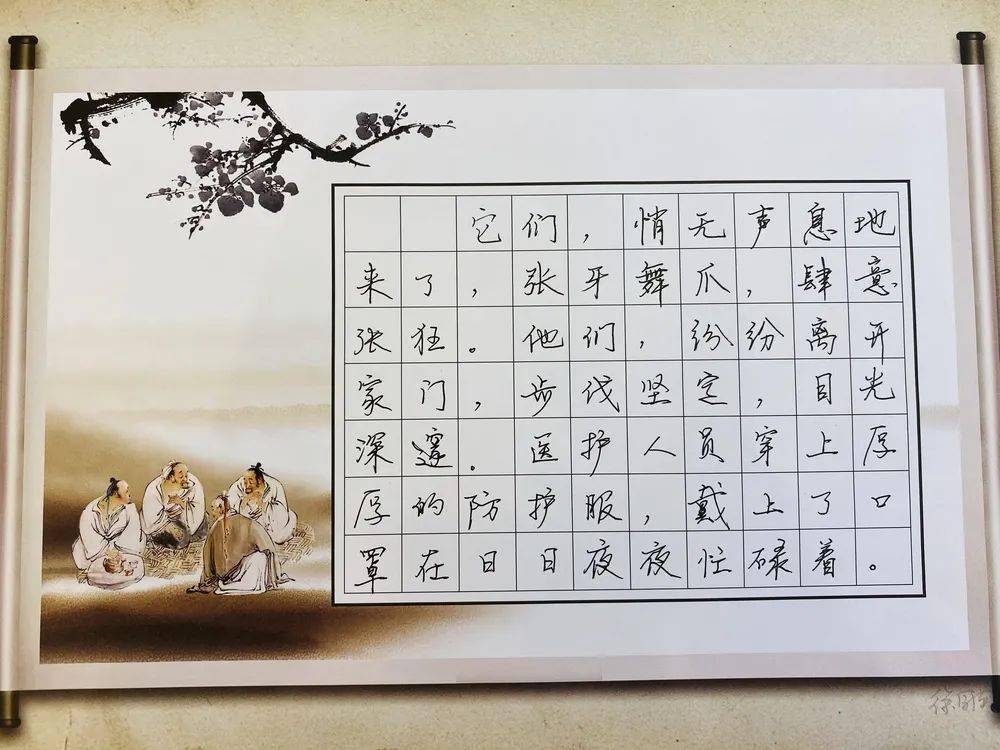 它们,悄无声息地
来了,张牙舞爪,肆意
张狂。他们,纷纷离开
家门,步伐坚定,目光
深邃。医护人员穿上厚
厚的防护服,戴上了口
罩在日日夜夜忙碌着。